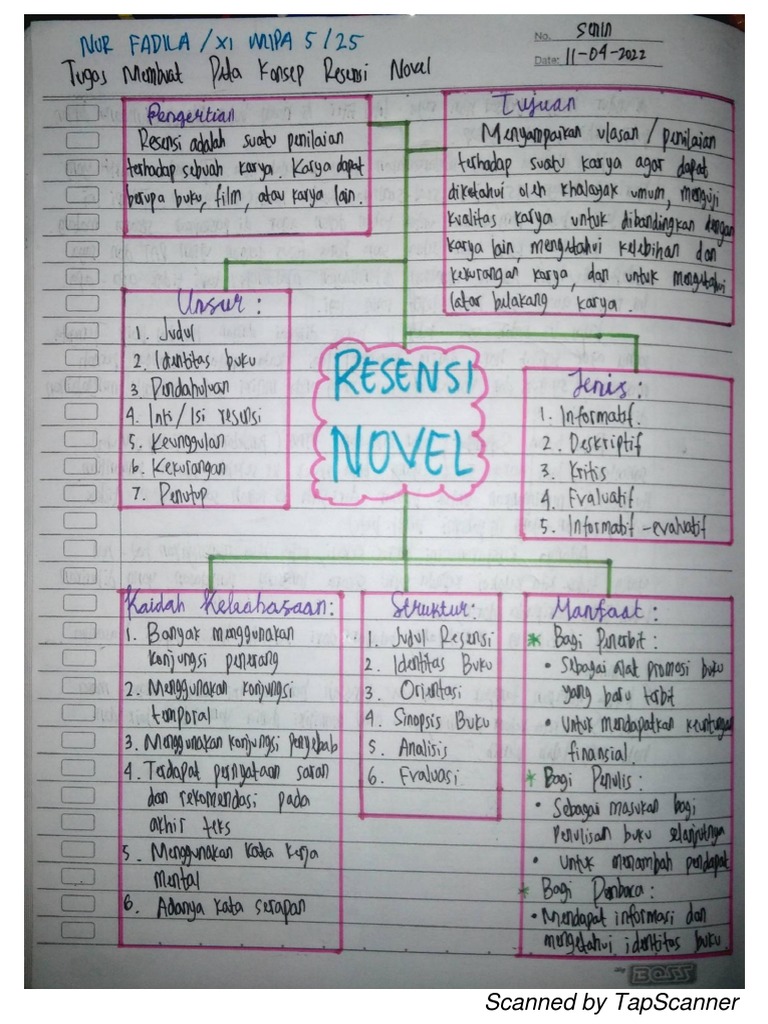 NUR FADILA / XI MIPA 5 / 25
Tugas Membuat Peta Konsep Resensi Novel
No. Senin
Date: 11-04-2022
Pengertian
Resensi adalah suatu penilaian
terhadap sebuah karya. Karya dapat
berupa buku, film, atau karya lain.
Tujuan
Menyampaikan ulasan / penilaian
terhadap suatu karya agar dapat
diketahui oleh khalayak umum, menguji
kualitas karya untuk dibandingkan dengan
karya lain, mengetahui kelebihan dan
kekurangan karya, dan untuk mengetahui
latar belakang karya.
Unsur :
1. Judul
2. Identitas buku
3. Pendahuluan
4. Inti / Isi resensi
5. Keunggulan
6. Kekurangan
7. Penutup
RESENSI
NOVEL
Jenis :
1. Informatif.
2. Deskriptif
3. Kritis
4. Evaluatif
5. Informatif - evaluatif
Kaidah Kebahasaan:
1. Banyak menggunakan
konjungsi penerang
2. Menggunakan konjungsi
temporal
3. Menggunakan konjungsi penyebab
4. Terdapat pernyataan saran
dan rekomendasi pada
akhir teks
5. Menggunakan kata kerja
mental
6. Adanya kata serapan
Struktur:
1. Judul Resensi
2. Identitas Buku
3. Orientasi
4. Sinopsis Buku
5. Analisis
6. Evaluasi
Manfaat :
* Bagi Penerbit :
• Sebagai alat promosi buku
yang baru terbit
• Untuk mendapatkan keuntungan
finansial
* Bagi Penulis :
• Sebagai masukan bagi
penulisan buku selanjutnya
• Untuk menambah pendapat
* Bagi Pembaca :
• Mendapat informasi dan
mengetahui identitas buku.
BOSS
Scanned by TapScanner